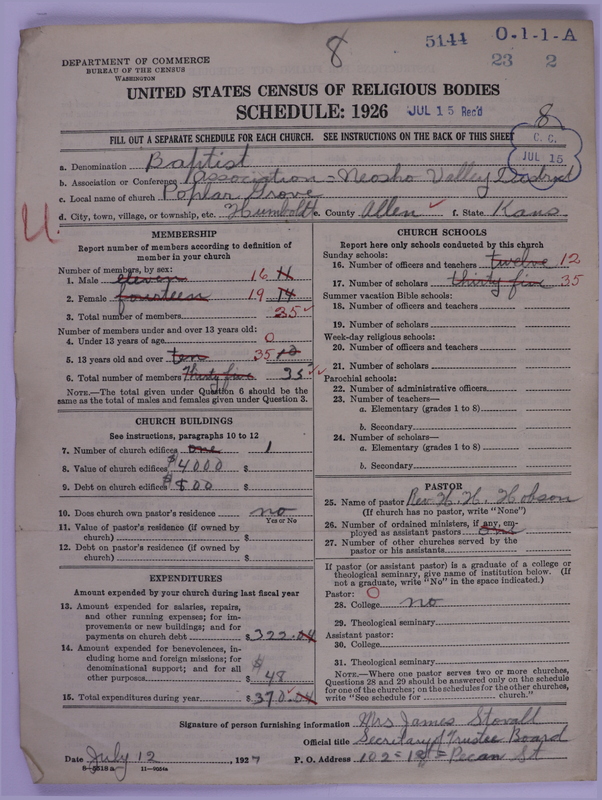 8 5144 O-1-1-A
23 2
DEPARTMENT OF COMMERCE
BUREAU OF THE CENSUS
WASHINGTON
UNITED STATES CENSUS OF RELIGIOUS BODIES
SCHEDULE: 1926 JUL 15 Rec'd 8
FILL OUT A SEPARATE SCHEDULE FOR EACH CHURCH. SEE INSTRUCTIONS ON THE BACK OF THIS SHEET
C. C.
JUL 15
a. Denomination Baptist
b. Association or Conference Association = Neosho Valley District
c. Local name of church Poplar Grove
d. City, town, village, or township, etc. Humboldt e. County Allen f. State Kans
MEMBERSHIP
Report number of members according to definition of
member in your church
Number of members, by sex:
1. Male eleven 16 11
2. Female fourteen 19 14
3. Total number of members 35
Number of members under and over 13 years old:
4. Under 13 years of age 0
5. 13 years old and over ten 35
6. Total number of members Thirty five 35
NOTE.—The total given under Question 6 should be the
same as the total of males and females given under Question 3.
CHURCH BUILDINGS
See instructions, paragraphs 10 to 12
7. Number of church edifices one 1
8. Value of church edifices $4000 $
9. Debt on church edifices $ 00 $
10. Does church own pastor's residence no
Yes or No
11. Value of pastor's residence (if owned by
church) $
12. Debt on pastor's residence (if owned by
church) $
EXPENDITURES
Amount expended by your church during last fiscal year
13. Amount expended for salaries, repairs,
and other running expenses; for im-
provements or new buildings; and for
payments on church debt $322.04
14. Amount expended for benevolences, in-
cluding home and foreign missions; for
denominational support; and for all
other purposes $ 48
15. Total expenditures during year $370.04
CHURCH SCHOOLS
Report here only schools conducted by this church
Sunday schools:
16. Number of officers and teachers twelve 12
17. Number of scholars thirty five 35
Summer vacation Bible schools:
18. Number of officers and teachers
19. Number of scholars
Week-day religious schools:
20. Number of officers and teachers
21. Number of scholars
Parochial schools:
22. Number of administrative officers
23. Number of teachers—
a. Elementary (grades 1 to 8)
b. Secondary
24. Number of scholars—
a. Elementary (grades 1 to 8)
b. Secondary
PASTOR
25. Name of pastor Rev. H. H. Hobson
(If church has no pastor, write "None")
26. Number of ordained ministers, if any, em-
ployed as assistant pastors one
27. Number of other churches served by the
pastor or his assistants
If pastor (or assistant pastor) is a graduate of a college or
theological seminary, give name of institution below. (If
not a graduate, write "No" in the space indicated.)
Pastor: 0
28. College no
29. Theological seminary
Assistant pastor:
30. College
31. Theological seminary
NOTE.—Where one pastor serves two or more churches,
Questions 28 and 29 should be answered only on the schedule
for one of the churches; on the schedules for the other churches,
write "See schedule for church."
Signature of person furnishing information Mrs James Stovall
Official title Secretary of Trustee Board
Date July 12, 1927 P. O. Address 102 = 18 = Pecan St